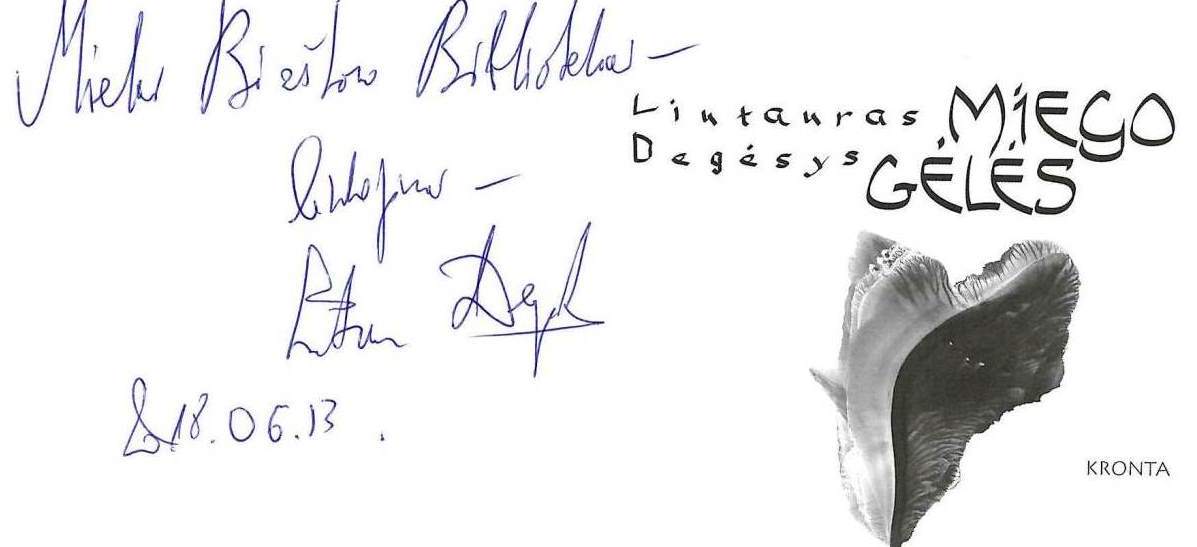 Mielai Birštono Bibliotekai –
linkėjimai –
2018.06.13.
Liutauras Degėsys
MIEGO GĖLĖS
KRONTA